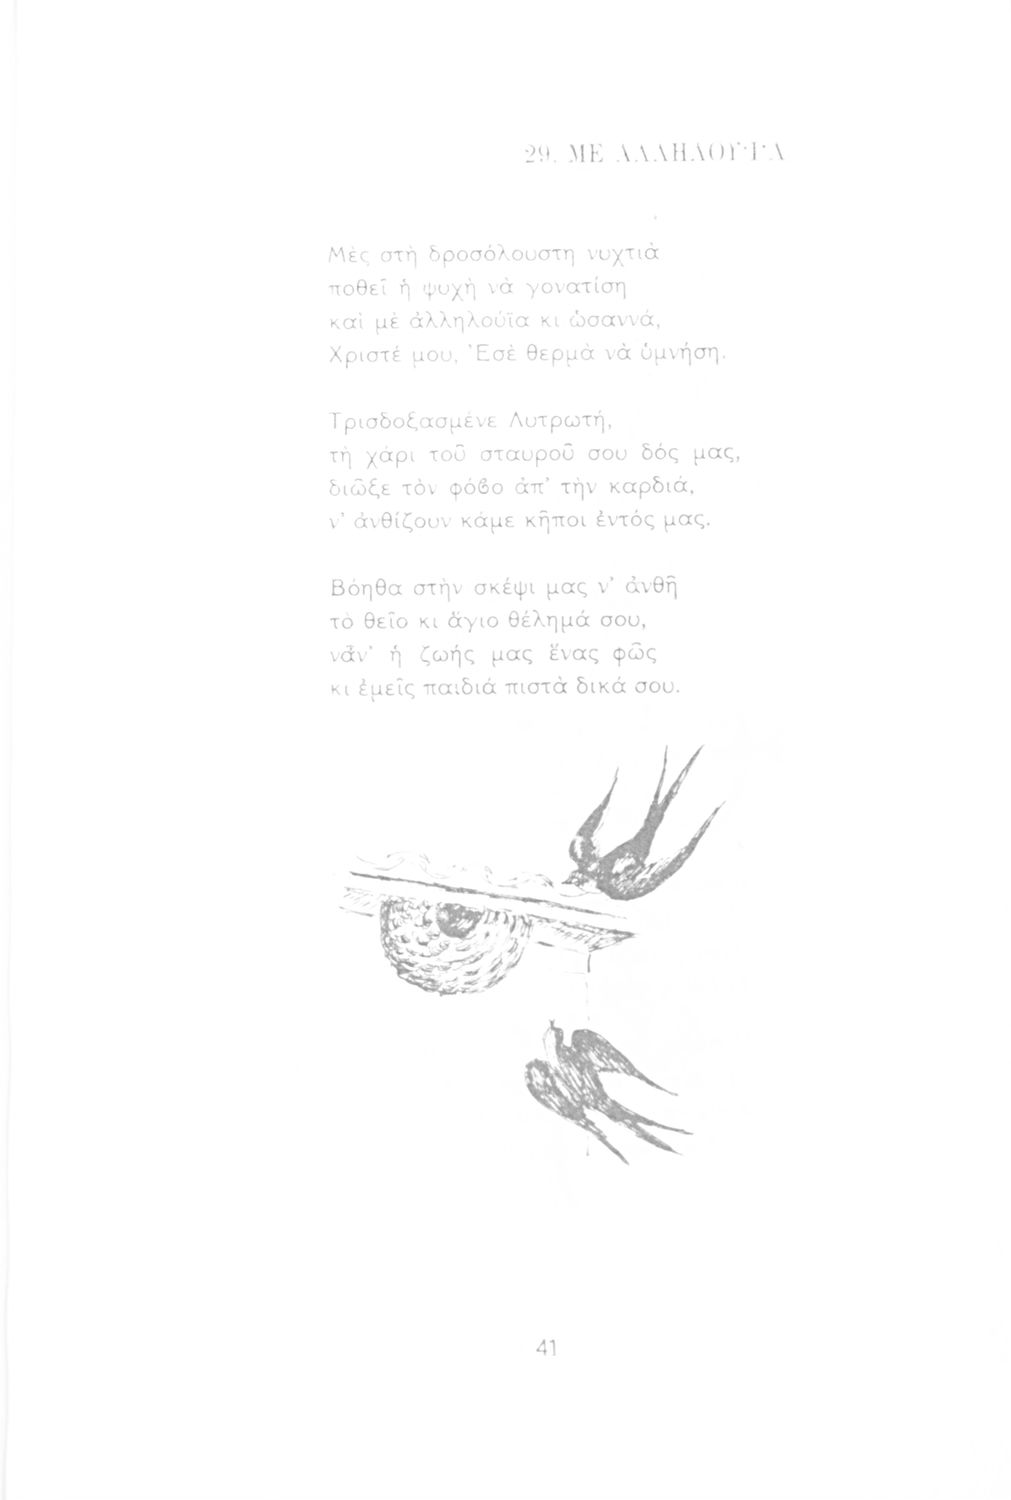 29. ΜΕ ΑΛΛΗΛΟΥ·Ι·Α
Μὲς στὴ δροσόλουστη νυχτιὰ
ποθεῖ ἡ ψυχὴ νὰ γονατίση
καὶ μὲ ἀλληλούϊα κι ὡσαννά,
Χριστέ μου, Ἐσὲ θερμὰ νὰ ὑμνήση.
Τρισδοξασμένε Λυτρωτή,
τὴ χάρι τοῦ σταυροῦ σου δός μας,
διῶξε τὸν φόβο ἀπ' τὴν καρδιά,
ν' ἀνθίζουν κάμε κῆποι ἐντός μας.
Βόηθα στὴν σκέψι μας ν' ἀνθῆ
τὸ θεῖο κι ἅγιο θέλημά σου,
νἆν' ἡ ζωής μας ἕνας φῶς
κι ἐμεῖς παιδιά πιστὰ δικά σου.
41